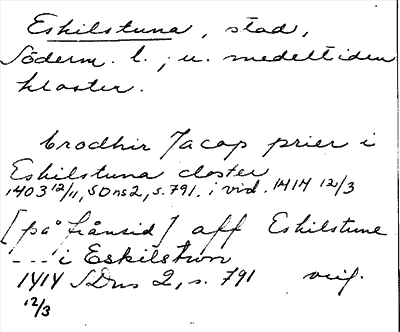 Eskilstuna, stad,
Söderm. l.; u. medeltiden
kloster.
brodhir Jacop prier i
Eskilstuna closter
1403 12/11, SDns 2, s. 791. i vid. 1414 12/3
[på frånsid] aff Eskilstune
--- i Eskilstwn
1414 SDns 2, s. 791
12/3